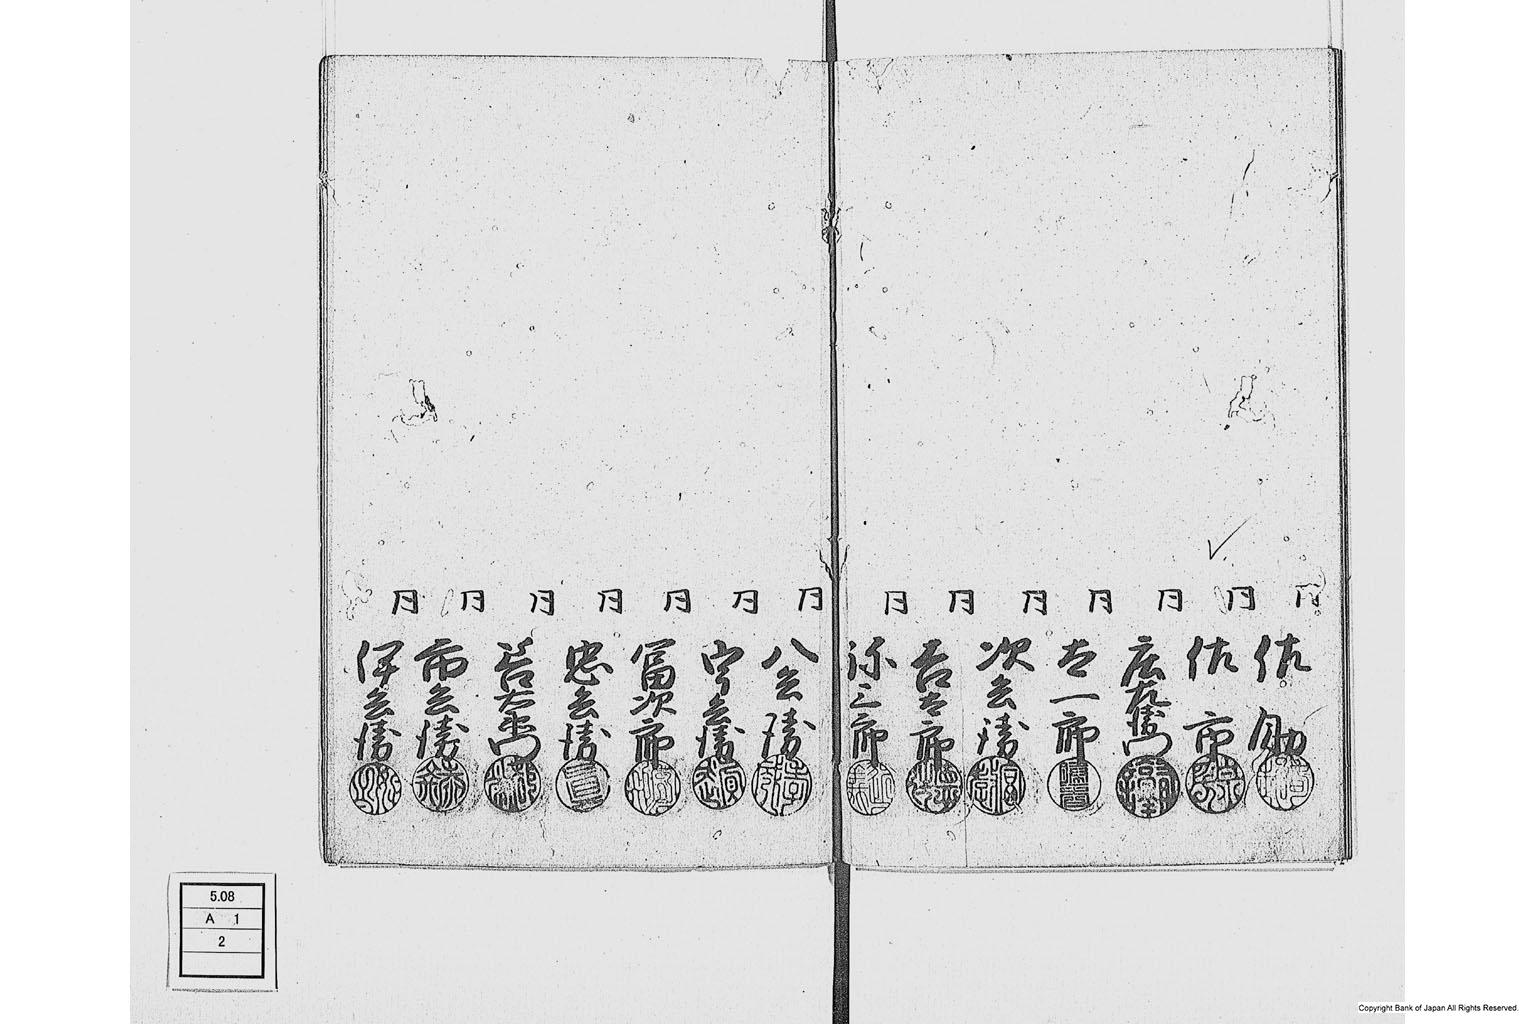 同 佐助
同 佐市
同 庄左衛門
同 太一郎
同 次兵衛
同 吉太郎
同 弥三郎
同 八兵衛
同 宇兵衛
同 冨次郎
同 忠兵衛
同
同 市兵衛
同 伊兵衛
5.08
A 1
2
Copyright Bank of Japan All Rights Reserved.